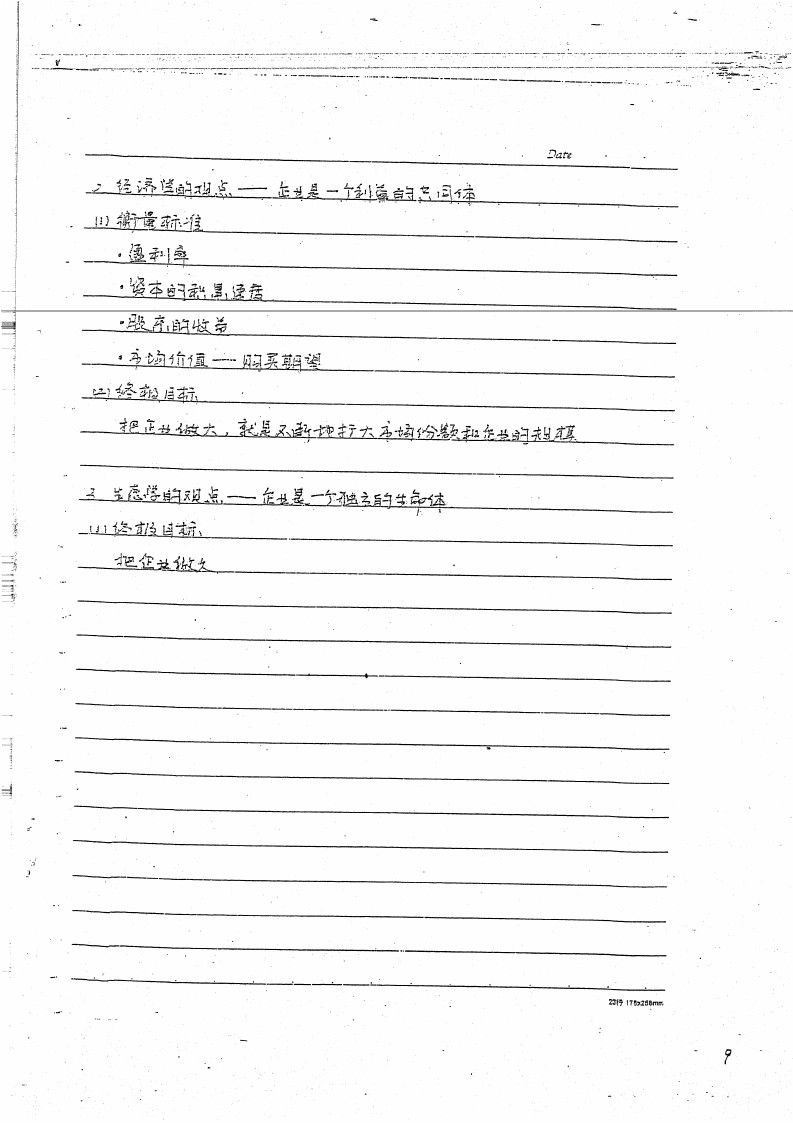 Date
2. 经济学的观点 —— 企业是一个利益的共同体
(1) 衡量标准
·盈利率
·资本的积累速度
·股东的收益
·市场价值 —— 购买期望
(2) 终极目标
把企业做大，就是不断地扩大市场份额和企业的规模
3. 生态学的观点 —— 企业是一个独立的生命体
(1) 终极目标
把企业做久
23行 176x258mm
9